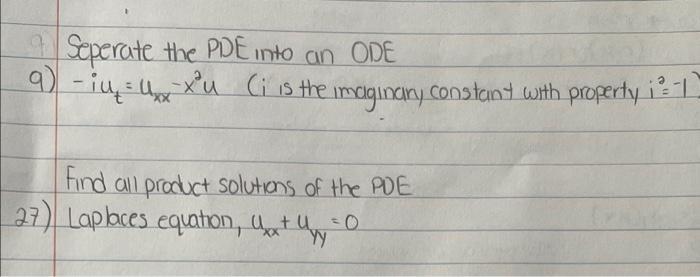 9 Seperate the PDE into an ODE
9) -iuₜ = uₓₓ - x²u (i is the imaginary constant with property i² = -1)
Find all product solutions of the PDE
27) Laplaces equation, uₓₓ + u_yy = 0